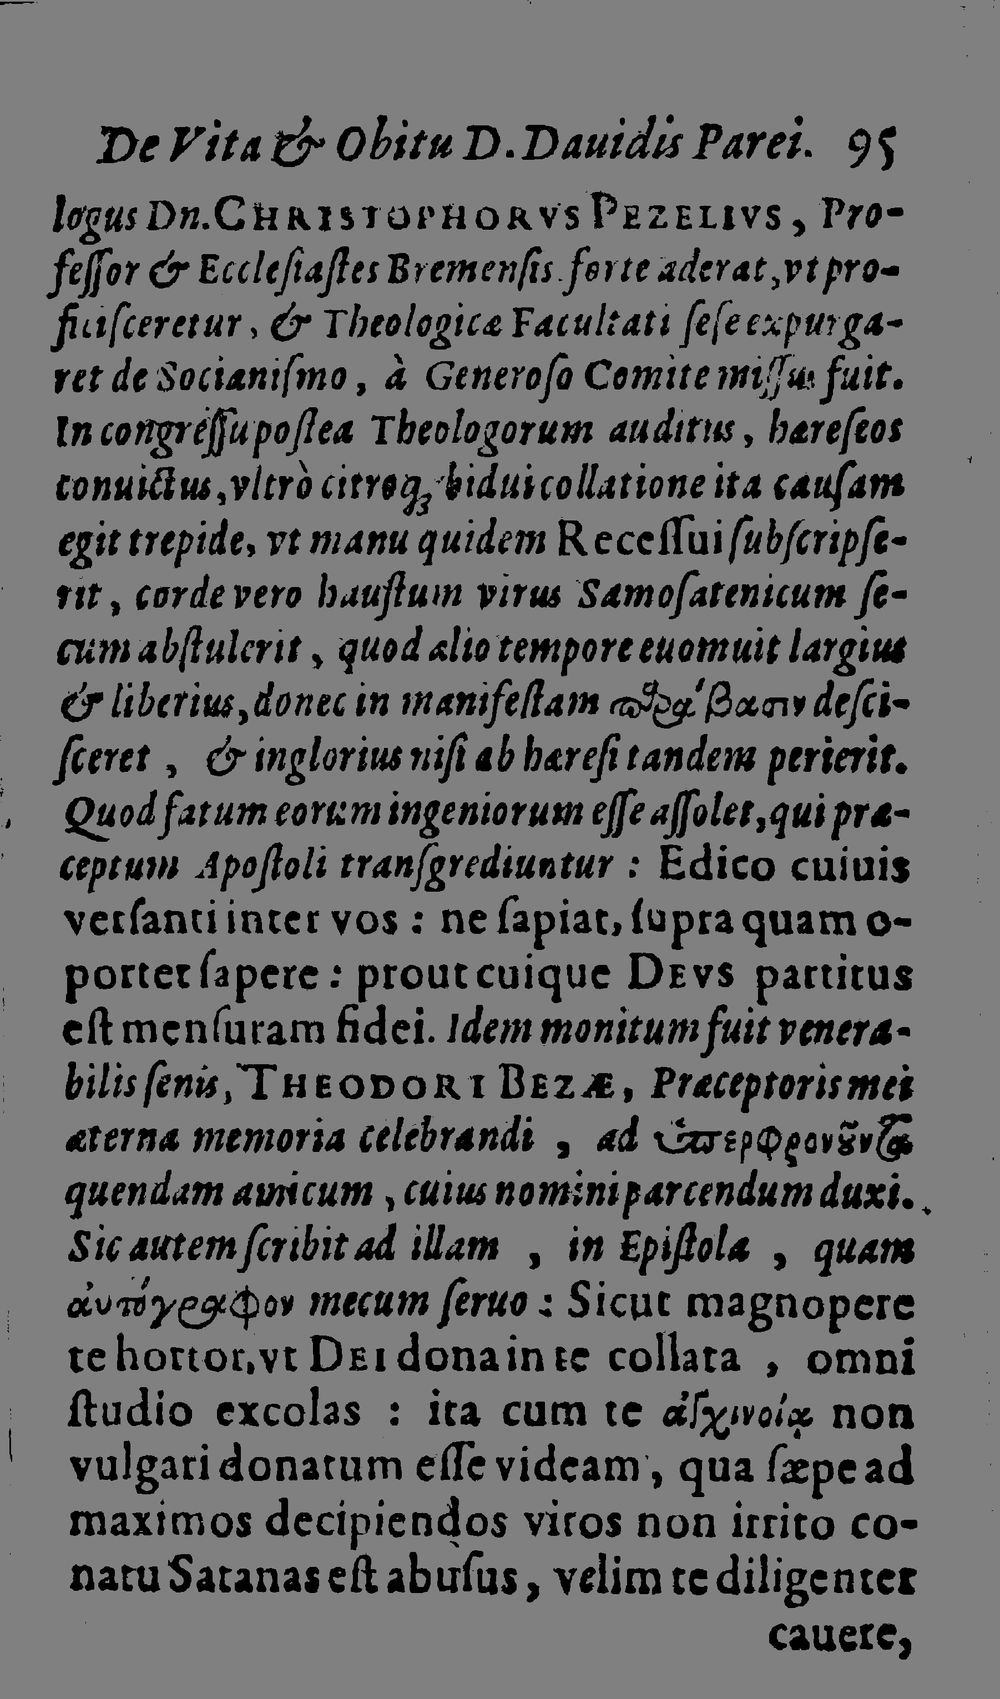 De Vita & Obitu D. Dauidis Parei. 95
logus Dn. CHRISTOPHORVS PEZELIVS, Pro-
feſſor & Eccleſiaſtes Bremenſis forte aderat, vt pro-
ficiſceretur, & Theologicæ Facultati ſeſe expurga-
ret de Socianiſmo, à Generoſo Comite miſſus fuit.
In congreſſu poſtea Theologorum auditus, hæreſeos
conuictus, vltrò citroq; bidui collatione ita cauſam
egit trepide, vt manu quidem Receſſui ſubſcripſe-
rit, corde vero hauſtum virus Samoſatenicum ſe-
cum abſtulerit, quod alio tempore euomuit largius
& liberius, donec in manifeſtam παράβασιν deſci-
ſceret, & inglorius niſi ab hæreſi tandem perierit.
Quod fatum eorum ingeniorum eſſe aſſolet, qui præ-
ceptum Apoſtoli tranſgrediuntur: Edico cuiuis
verſanti inter vos: ne ſapiat, ſupra quam o-
portet ſapere: prout cuique DEVS partitus
eſt menſuram fidei. Idem monitum fuit venera-
bilis ſenis, THEODORI BEZÆ, Præceptoris mei
æterna memoria celebrandi, ad ὑπερφρονοῦντα
quendam amicum, cuius nomini parcendum duxi.
Sic autem ſcribit ad illam, in Epiſtola, quam
αὐτόγραφον mecum ſeruo: Sicut magnopere
te hortor, vt DEI dona in te collata, omni
ſtudio excolas: ita cum te ἀγχινοίᾳ non
vulgari donatum eſſe videam, qua ſæpe ad
maximos decipiendos viros non irrito co-
natu Satanas eſt abuſus, velim te diligenter
cauere,